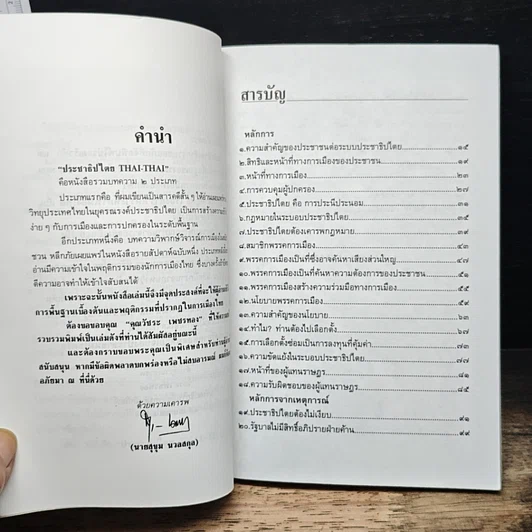 คำนำ
"ประชาธิปไตย THAI-THAI"
คือหนังสือรวมบทความ ๒ ประเภท
ประเภทแรกคือ ที่ผมเขียนเป็นสารคดีสั้น ๆ ให้อ่าน
วิทยุประเทศไทยในยุครณรงค์ประชาธิปไตย เป็นการสร้างความ
ง่าย ๆ กับการเมืองและการปกครองในระดับพื้นฐาน
อีกประเภทหนึ่งคือ บทความวิพากษ์วิจารณ์การเมือง
ชวน หลีกภัยเผยแพร่ในหนังสือรายสัปดาห์ฉบับหนึ่ง
อ่านมีความเข้าใจในพฤติกรรมของนักการเมืองไทย
ดีความอาจทำให้เข้าใจสับสนได้
เพราะฉะนั้นหนังสือเล่มนี้จึงมีจุดประสงค์ที่จะให้
การพื้นฐานเบื้องต้นและพฤติกรรมที่ปรากฏในการเมืองไทย
ต้องขอขอบคุณ "คุณวัชระ เพชรทอง" ที่ให้
รวบรวมพิมพ์เป็นเล่มดังที่ท่านได้สัมผัสอยู่ขณะนี้
และต้องกราบขอบพระคุณเป็นพิเศษสำหรับท่าน
สนับสนุน หากมีข้อผิดพลาดบกพร่องหรือไม่สบอารมณ์
อภัยมา ณ ที่นี้ด้วย
ด้วยความเคารพ
(นายสุขุม นวลสกุล)
สารบัญ
หลักการ
๑.ความสำคัญของประชาชนต่อระบบประชาธิปไตย ๑๕
๒.สิทธิและหน้าที่ทางการเมืองของประชาชน ๑๙
๓.หน้าที่ทางการเมือง ๒๓
๔.การควบคุมผู้ปกครอง ๒๗
๕.ประชาธิปไตย คือ การประนีประนอม ๓๑
๖.กฎหมายในระบอบประชาธิปไตย ๓๕
๗.ประชาธิปไตยต้องเคารพกฎหมาย ๓๙
๘.สมาชิกพรรคการเมือง ๔๓
๙.พรรคการเมืองเป็นที่ซึ่งอาจค้นหาเสียงส่วนใหญ่ ๔๗
๑๐.พรรคการเมืองเป็นที่ค้นหาความต้องการของประชาชน ๕๑
๑๑.พรรคการเมืองสร้างความร่วมมือทางการเมือง ๕๕
๑๒.นโยบายพรรคการเมือง ๖๓
๑๓.ความสำคัญของนโยบาย ๖๗
๑๔.ทำไม? ท่านต้องไปเลือกตั้ง
๑๕.การเลือกตั้งซ่อมเป็นการลงทุนที่คุ้มค่า ๗๓
๑๖.ความขัดแย้งในระบอบประชาธิปไตย ๗๗
๑๗.หน้าที่ของผู้แทนราษฎร ๘๑
๑๘.ความรับผิดชอบของผู้แทนราษฎร ๘๕
หลักการจากเหตุการณ์
๑๙.ประชาธิปไตยต้องไม่เงียบ ๙๑
๒๐.รัฐบาลไม่มีสิทธิ์อภิปรายฝ่ายค้าน ๙๙